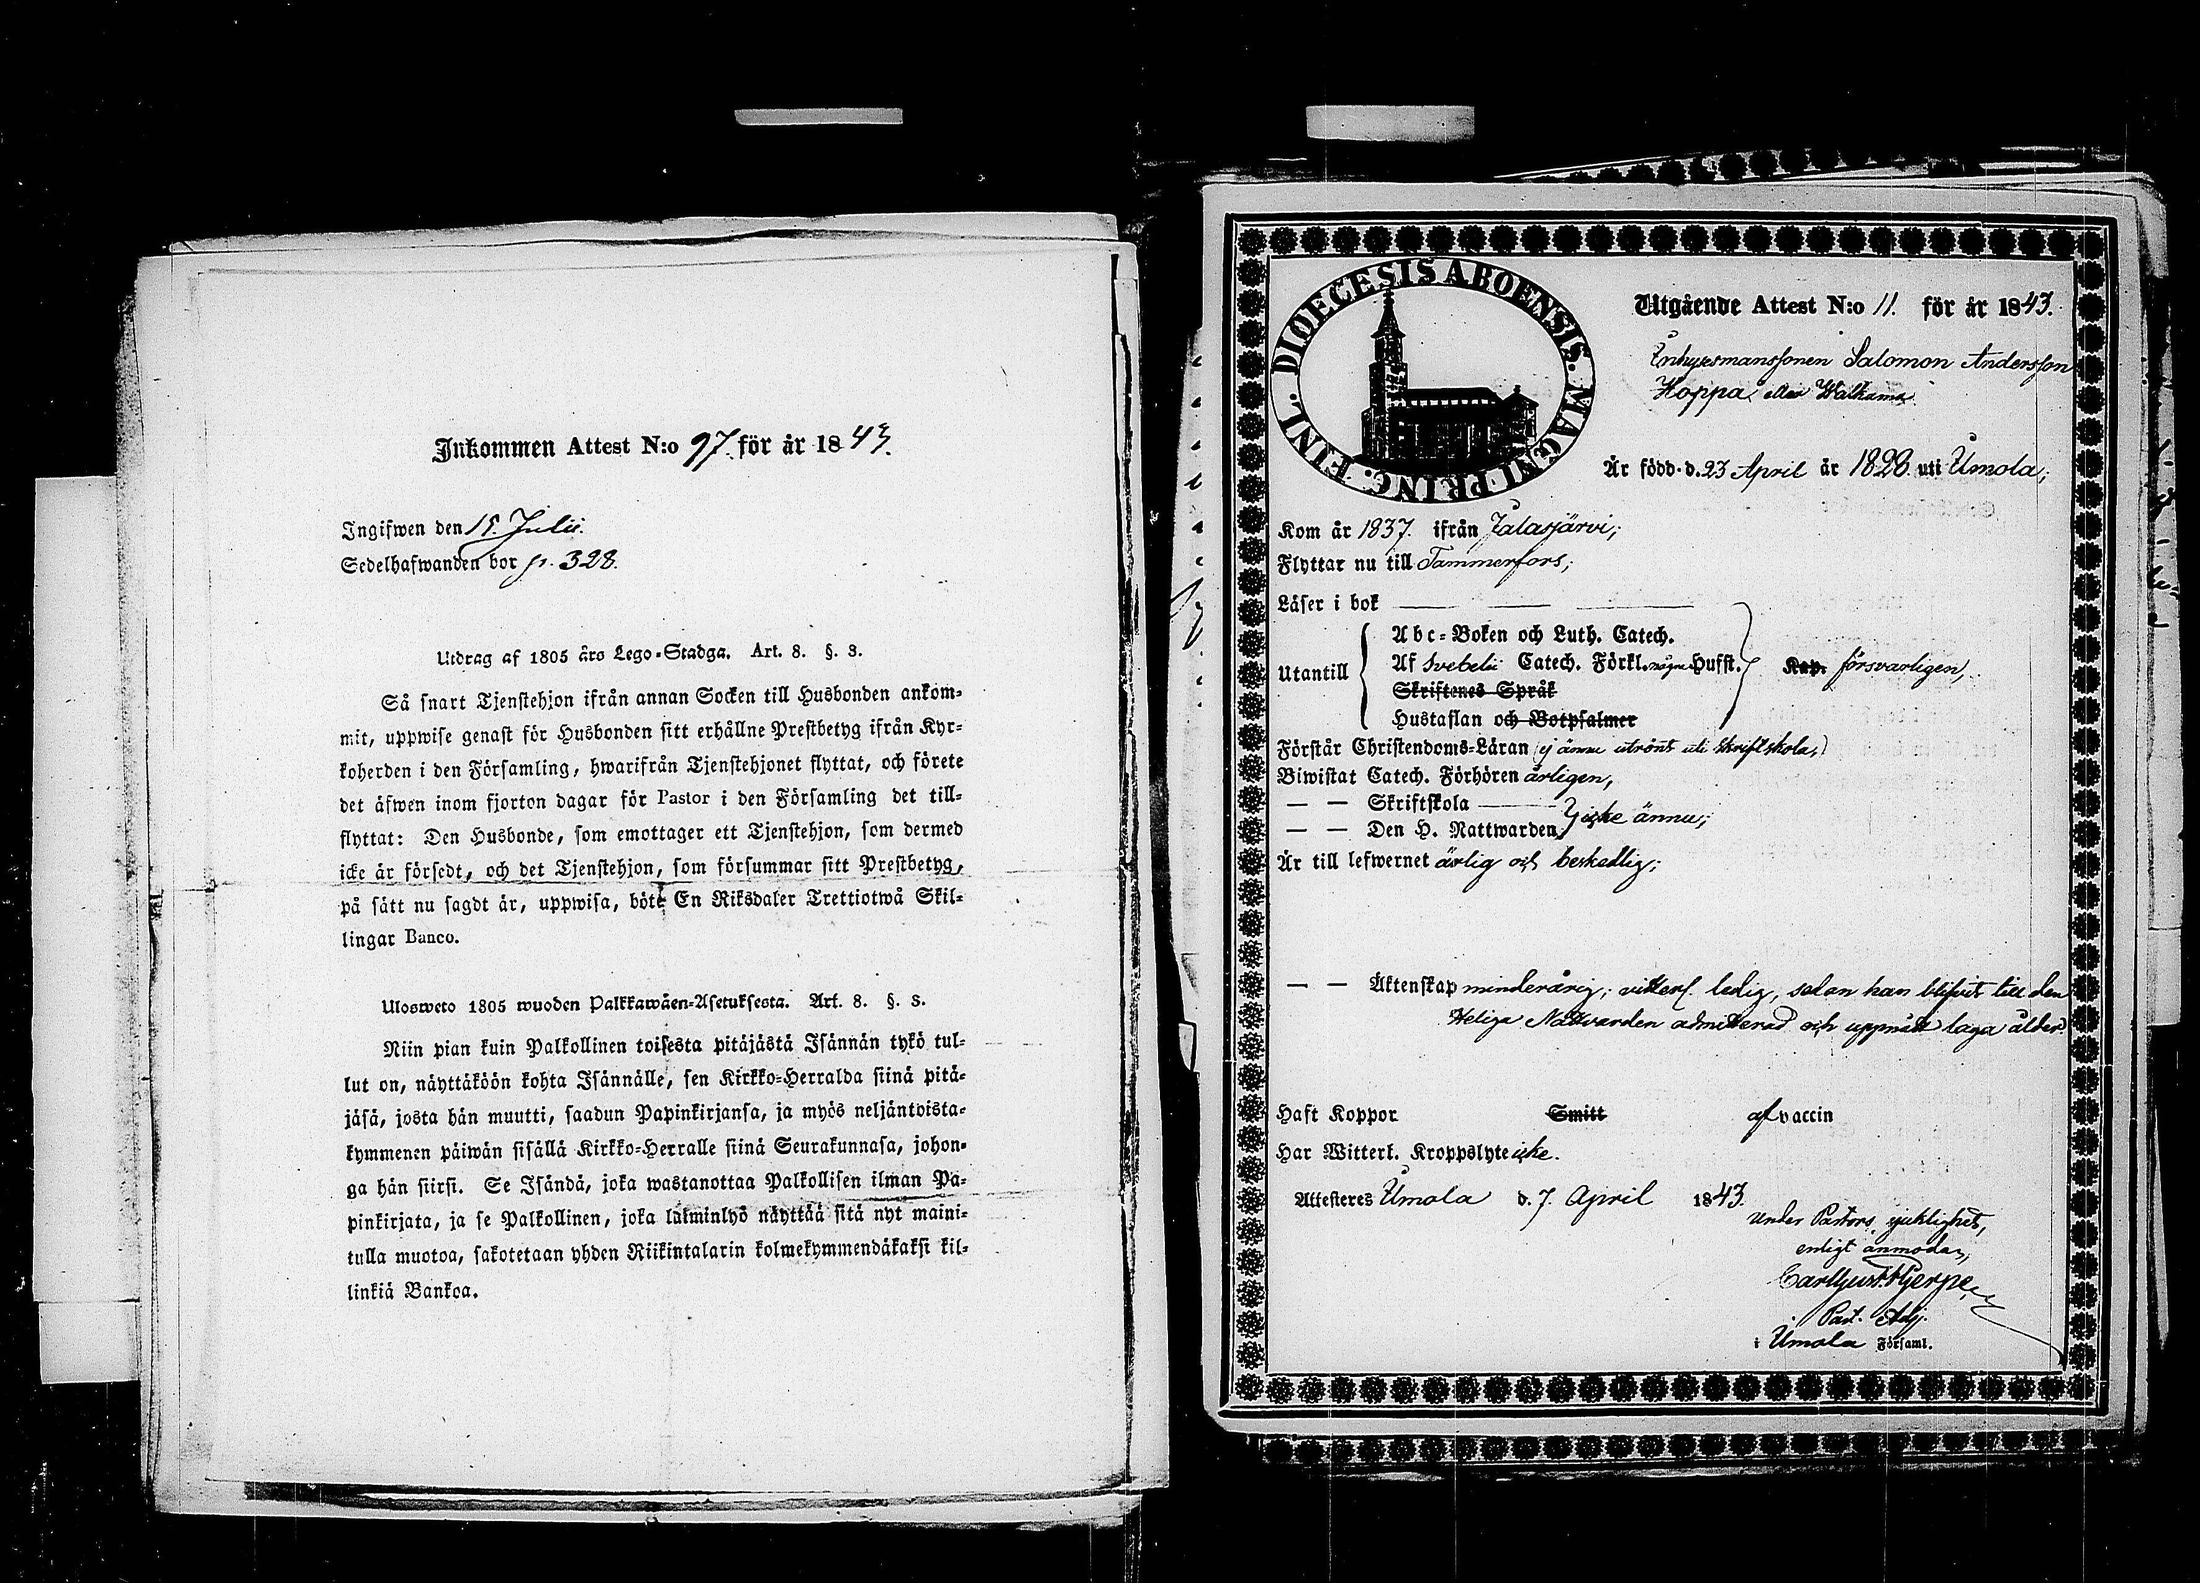 Inkommen Attest N:o 97. för år 1843.
Ingifwen den 15. Julii.
Sedelhafwanden bor p. 328.
Utdrag af 1805 års Lego-Stadga. Art. 8. §. 3.
Så snart Tjenstehjon ifrån annan Socken till Husbonden ankom-
mit, uppwise genast för Husbonden sitt erhållne Prestbetyg ifrån Kyr-
koherden i den Församling, hwarifrån Tjenstehjonet flyttat, och förete
det äfwen inom fjorton dagar för Pastor i den Församling det till-
flyttat: Den Husbonde, som emottager ett Tjenstehjon, som dermed
icke är försedt, och det Tjenstehjon, som försummar sitt Prestbetyg,
på sätt nu sagdt är, uppwisa, böte En Riksdaler Trettiotwå Skil-
lingar Banco.
Ulosweto 1805 wuoden Palkkawäen-Asetuksesta. Art. 8. §. 3.
Niin pian kuin Palkollinen toisesta pitäjästä Isännän tykö tul-
lut on, näyttäköön kohta Isännälle, sen Kirkko-Herralda siinä pitä-
jäsä, josta hän muutti, saadun Papinkirjansa, ja myös neljäntoista-
kymmenen päiwän sisällä Kirkko-Herralle siinä Seurakunnasa, johon-
ga hän siirsi. Se Isändä, joka wastanottaa Palkollisen ilman Pa-
pinkirjata, ja se Palkollinen, joka laiminlyö näyttää sitä nyt maini-
tulla muotoa, sakotetaan yhden Riikintalarin kolmekymmendäkaksi kil-
linkiä Bankoa.
DIOECESIS ABOENSIS. MAGNI PRINC. FINL.
Utgående Attest N:o 11. för år 1843.
Inhysesmanssonen Salomon Andersson
Hoppa eller Walkama
Är född d. 23 April år 1826. uti Umola;
Kom år 1837. ifrån Jalasjärvi;
Flyttar nu till Tammerfors;
Läser i bok
Utantill
Abc-Boken och Luth. Catech.
Af Svebelii Catech. Förkl. några Hufst.
Skriftenes Språk
Hustaflan och Botpsalmer
Kap. försvarligen,
Förstår Christendoms-Läran (ej ännu utrönt uti Skriftskola,)
Biwistat Catech. Förhören årligen,
— — Skriftskola
— — Den H. Nattwarden
Icke ännu;
Är till lefwernet ärlig och beskedlig;
— — Äktenskap minderårig; vitterl. ledig, sedan han blifvit till den
Heliga Nattvarden admitterad och uppnått laga ålder.
Haft Koppor Smitt af vaccin
Har Witterl. Kroppslyte icke.
Attesteres Umola d. 7. April 1843.
Under Pastors sjuklighet,
enligt anmodan,
Past. Adj.
i Umola Församl.